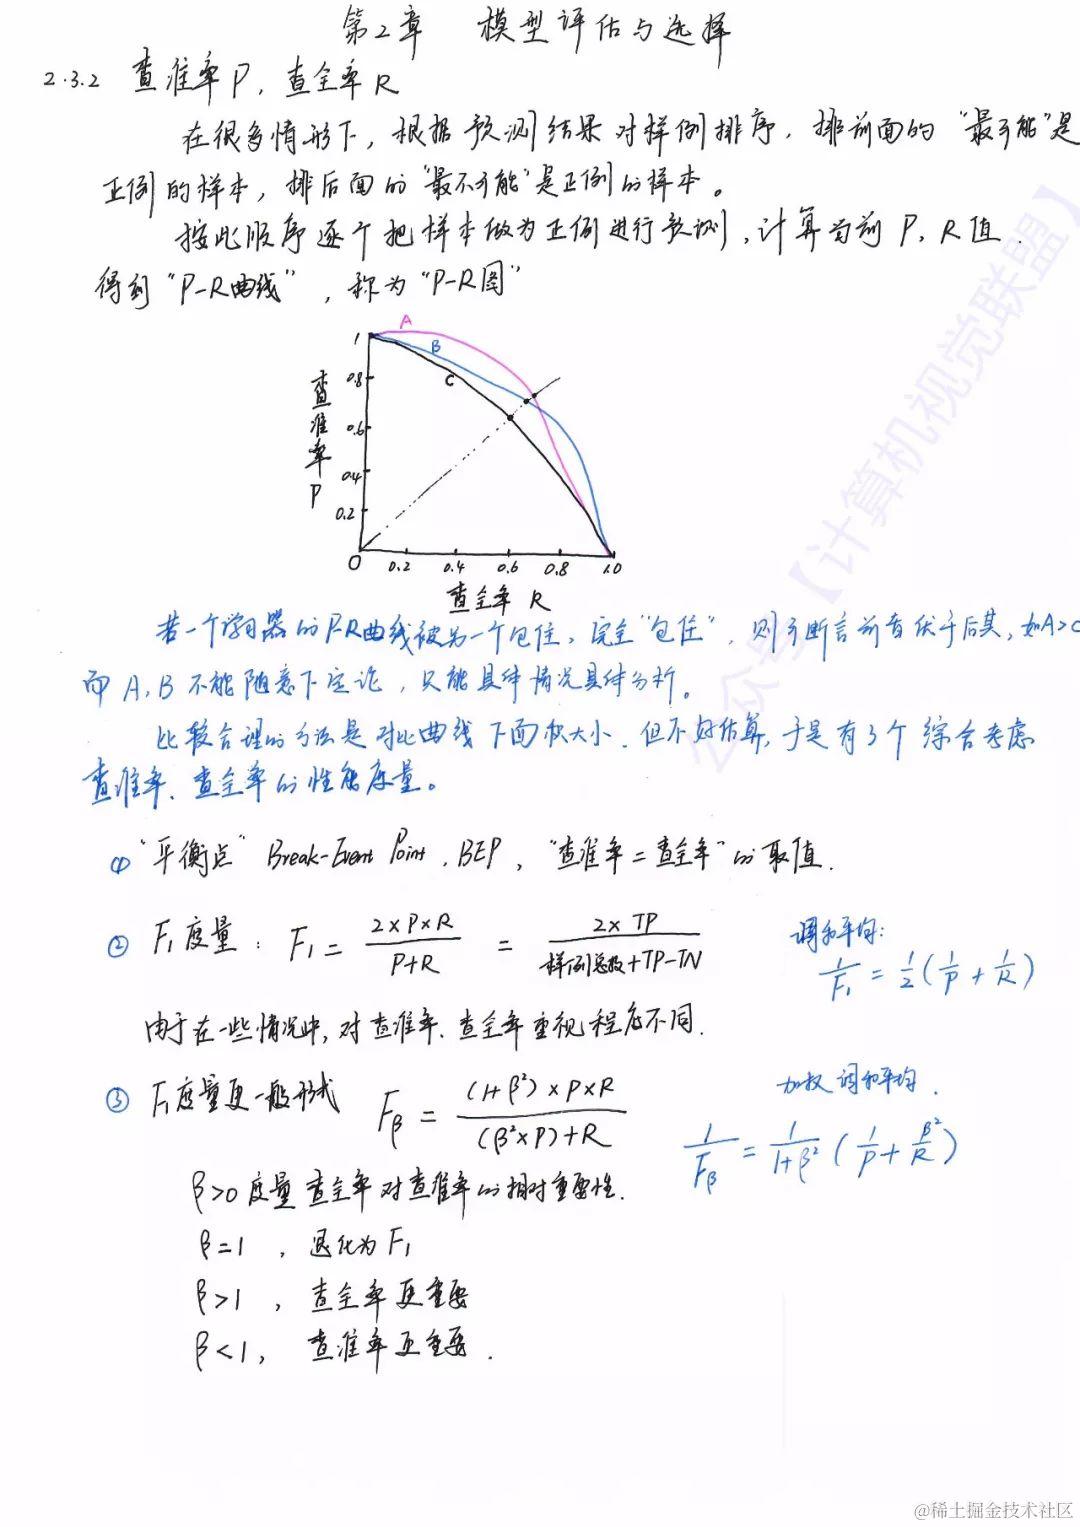 第2章 模型评估与选择
2.3.2 查准率P，查全率R
在很多情形下，根据预测结果对样例排序，排前面的“最可能”是
正例的样本，排后面的“最不可能”是正例的样本。
按此顺序逐个把样本做为正例进行预测，计算当前P，R值
得到“P-R曲线”，称为“P-R图”
A
B
C
1
0.8
0.6
0.4
0.2
查准率P
0 0.2 0.4 0.6 0.8 1.0
查全率 R
若一个学习器的P-R曲线被另一个包住，完全“包住”，则可断言前者优于后者，如A>C
而A,B不能随意下定论，只能具体情况具体分析。
比较合理的方法是对比曲线下面积大小，但不好估算，于是有3个综合考虑
查准率、查全率的性能度量。
① “平衡点” Break-Event Point，BEP，“查准率=查全率”的取值.
② F₁度量：F₁ = 2×P×R / P+R = 2×TP / 样例总数+TP-TN
调和平均：
1/F₁ = 1/2 (1/P + 1/R)
由于在一些情况中，对查准率、查全率重视程度不同.
③ F₁度量更一般形式 Fβ = (1+β²)×P×R / (β²×P)+R
加权调和平均.
1/Fβ = 1/1+β² (1/P + β²/R)
β>0 度量查全率对查准率的相对重要性.
β=1 ，退化为F₁
β>1 ，查全率更重要
β<1， 查准率更重要.
公众号【计算机视觉联盟】
@稀土掘金技术社区